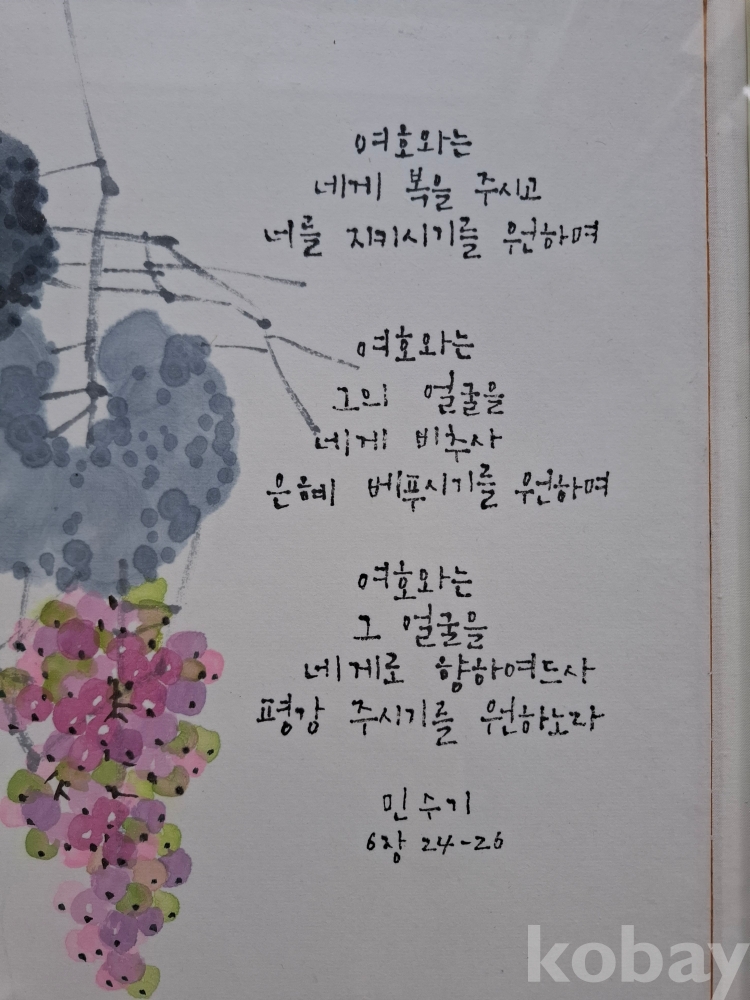 여호와는
네게 복을 주시고
너를 지키시기를 원하며
여호와는
그의 얼굴을
네게 비추사
은혜 베푸시기를 원하며
여호와는
그 얼굴을
네게로 향하여드사
평강 주시기를 원하노라
민수기
6장 24-26
kobay